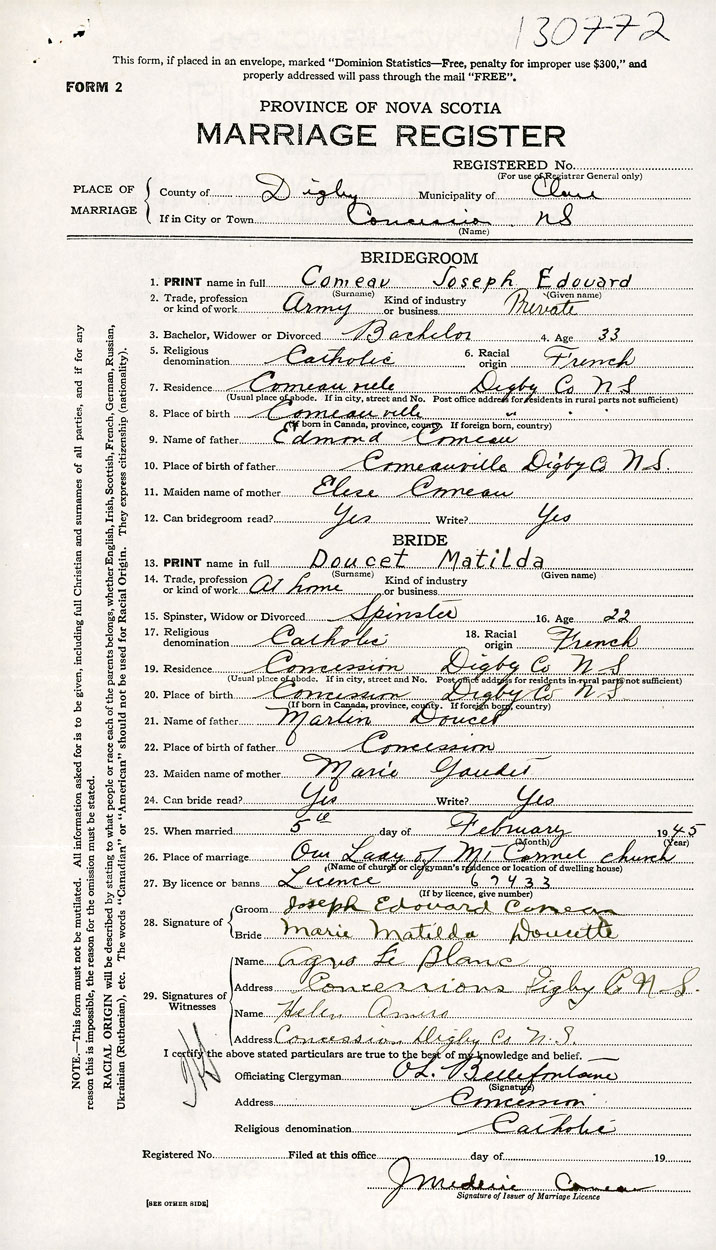 130772
This form, if placed in an envelope, marked “Dominion Statistics—Free, penalty for improper use $300,” and
properly addressed will pass through the mail “FREE”.
FORM 2
PROVINCE OF NOVA SCOTIA
MARRIAGE REGISTER
REGISTERED No.
(For use of Registrar General only)
PLACE OF MARRIAGE
County of Digby Municipality of Clare
If in City or Town Concession NS
(Name)
BRIDEGROOM
1. PRINT name in full Comeau Joseph Edouard
(Surname) (Given name)
2. Trade, profession or kind of work Army Kind of industry or business Private
3. Bachelor, Widower or Divorced Bachelor 4. Age 33
5. Religious denomination Catholic 6. Racial origin French
7. Residence Comeauville Digby Co N S
(Usual place of abode. If in city, street and No. Post office address for residents in rural parts not sufficient)
8. Place of birth Comeauville " " "
(If born in Canada, province, county. If foreign born, country)
9. Name of father Edmond Comeau
10. Place of birth of father Comeauville Digby Co N S.
11. Maiden name of mother Elise Comeau
12. Can bridegroom read? Yes Write? Yes
BRIDE
13. PRINT name in full Doucet Matilda
(Surname) (Given name)
14. Trade, profession or kind of work At home Kind of industry or business
15. Spinster, Widow or Divorced Spinster 16. Age 22
17. Religious denomination Catholic 18. Racial origin French
19. Residence Concession Digby Co N S
(Usual place of abode. If in city, street and No. Post office address for residents in rural parts not sufficient)
20. Place of birth Concession Digby Co N S
(If born in Canada, province, county. If foreign born, country)
21. Name of father Martin Doucet
22. Place of birth of father Concession
23. Maiden name of mother Marie Gaudet
24. Can bride read? Yes Write? Yes
25. When married 5th day of February 1945
(Month) (Year)
26. Place of marriage Our Lady of Mt Carmel church
(Name of church or clergyman's residence or location of dwelling house)
27. By licence or banns Licence 67433
(If by licence, give number)
28. Signature of
Groom Joseph Edouard Comeau
Bride Marie Matilda Doucette
29. Signatures of Witnesses
Name Agnes Le Blanc
Address Concessions Digby Co N.S.
Name Helen Amiro
Address Concession Digby Co N.S.
I certify the above stated particulars are true to the best of my knowledge and belief.
Officiating Clergyman Bellefontaine
(Signature)
Address Concession
Religious denomination Catholic
Registered No. Filed at this office day of 19
J Mederic Comeau
Signature of Issuer of Marriage Licence
[SEE OTHER SIDE]
NOTE.—This form must not be mutilated. All information asked for is to be given, including full Christian and surnames of all parties, and if for any
reason this is impossible, the reason for the omission must be stated.
RACIAL ORIGIN will be described by stating to what people or race each of the parents belongs, whether English, Irish, Scottish, French, German, Russian,
Ukrainian (Ruthenian), etc. The words “Canadian” or “American” should not be used for Racial Origin. They express citizenship (nationality).